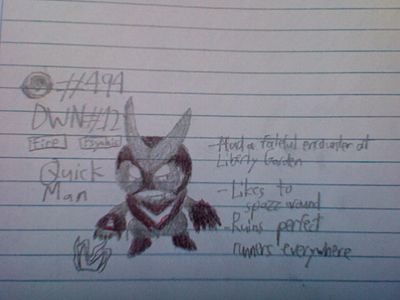 #494
DWN#12
Fire Psychic
Quick
Man
-Had a fateful encounter at
Liberty Garden
-Likes to
spazz around
-Ruins perfect
runners everywhere